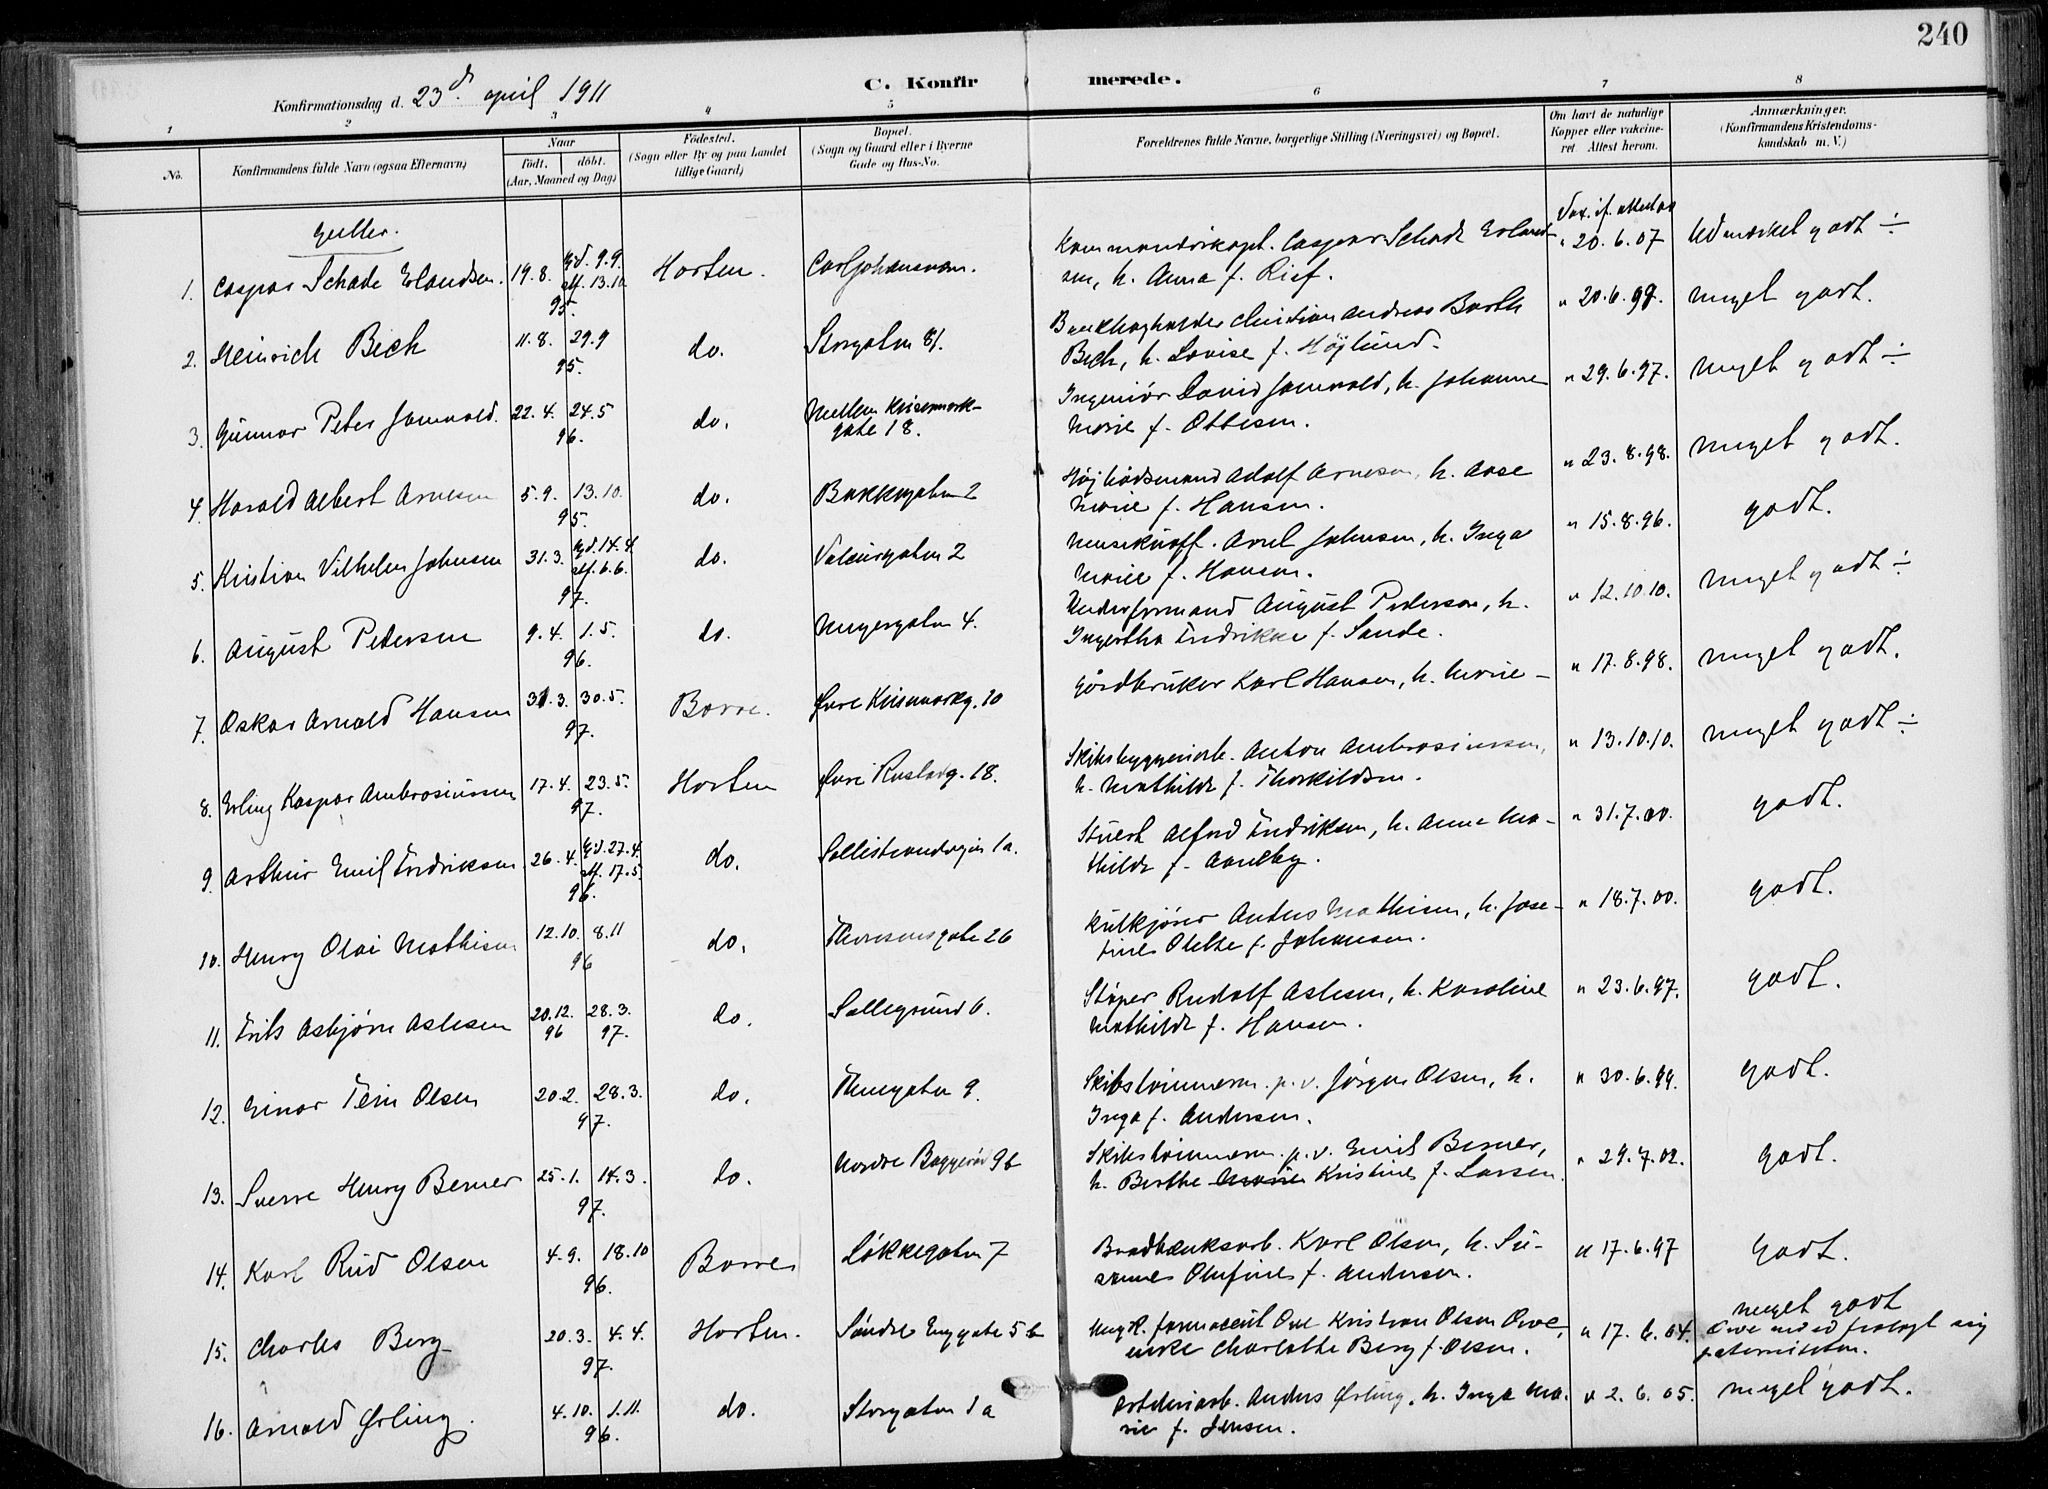 240
C. Konfirmerede.
Konfirmationsdag d. 23d. april 1911
1 2 3 4 5 6 7 8
No.
Konfirmandens fulde Navn (ogsaa Efternavn)
Naar
födt. döbt.
(Aar, Maaned og Dag)
Födested.
(Sogn eller By og paa Landet
tillige Gaard)
Bopæl.
(Sogn og Gaard eller i Byerne
Gade og Hus-No.
Forældrenes fulde Navne, borgerlige Stilling (Næringsvei) og Bopæl.
Om havt de naturlige
Kopper eller vakcine-
ret. Attest herom.
Anmærkninger.
(Konfirmandens Kristendoms-
kundskab m. V.)
Gutter.
Vax. if. attest av
1. Caspar Schade Erlandsen. 19.8. Gd. 9.9. stf. 13.10. 95. Horten. Carljohansvern. Kommandørkapt. Caspar Schade Erland-
sen, h. Anna f. Rief. " 20.6.07 Udmærket godt ÷
2. Heinrich Bech 11.8. 29.9 95. do. Storgaten 81. Bankbogholder Christian Andreas Barth
Bech, h. Lovise f. Höjlund. " 20.6.99. meget godt.
3. Gunnar Peter Jamvold. 22.4. 24.5 96. do. Mellem Keisemark-
gate 18. Ingeniör David Jamvold, h. Johanne
Marie f. Ottesen. " 29.6.97. meget godt ÷
4. Harald Albert Arnesen 5.9. 13.10. 95. do. Bakkegaten 2 Højbådsmand Adolf Arnesen, h. Aase
Marie f. Hansen. " 23.8.98. meget godt.
5. Kristian Vilhelm Johnsen 31.3. Gd. 14.4. stf. 6.6. 97. do. Vulcangaten 2 Musikuoff. Axel Johnsen, h. Inga
Marie f. Hansen. " 15.8.96. godt.
6. August Petersen 9.4. 1.5. 96. do. Meyergaten 4. Underformand August Pedersen, h.
Ingertha Fredrikke f. Sande. " 12.10.10. meget godt ÷
7. Oskar Arnold Hansen 31.3. 30.5. 97. Borre. Øvre Keisemarkg. 10 Gårdbruker Karl Hansen, h. Marie — " 17.8.98. meget godt.
8. Erling Kaspar Ambrosiussen 17.4. 23.5. 97. Horten Øvre Rustadg. 18. Skibsbyggeriarb. Anton Ambrosiussen,
h. Mathilde f. Thorkildsen. " 13.10.10. meget godt ÷
9. Arthur Emil Fredriksen 26.4. Gd. 27.4. stf. 17.5. 96. do. Sollistrandveien 1a. Stuert Alfred Fredriksen, h. Anna Ma-
thilde f. Aaneby. " 31.7.00. godt.
10. Henry Olai Mathisen 12.10. 8.11 96 do. Thoresensgate 26 Kulkjører Anton Mathisen, h. Jose-
fine Olette f. Johansen. " 18.7.00. godt.
11. Frits Asbjørn Aslesen 20.12. 96 28.3. 97. do. Sollegrund 6. Støper Rudolf Aslesen, h. Karoline
Mathilde f. Hansen. " 23.6.97. godt.
12. Einar Fein Olsen 20.2. 28.3. 97. do. Thuegaten 9. Skibstømmerm. p.v. Jörgen Olsen, h.
Inga f. Andersen. " 30.6.99. godt.
13. Sverre Henry Berner 25.1. 14.3. 97. do. Nordre Baggerød 9b Skibstømmerm. p.v. Emil Berner,
h. Berthe Marie Kristine f. Larsen. " 29.7.02. godt.
14. Karl Rud Olsen 4.9. 18.10 96. Borre Løkkegaten 7 Bradbænksarb. Karl Olsen, h. Su-
sanne Olufine f. Andersen. " 17.6.97 godt.
15. Charles Berg 20.3. 4.4. 97. Horten. Søndre Enggate 5b Ungk. farmaceut Ove Kristian Olsen Owe,
enke Charlotte Berg f. Olsen. " 17.6.04. meget godt
Owe
paterniteten.
16. Arnold Ørling. 4.10. 1.11. 96. do. Storgaten 1a Artilleriarb. Anders Ørling, h. Inga Ma-
rie f. Jensen. " 2.6.05. meget godt.